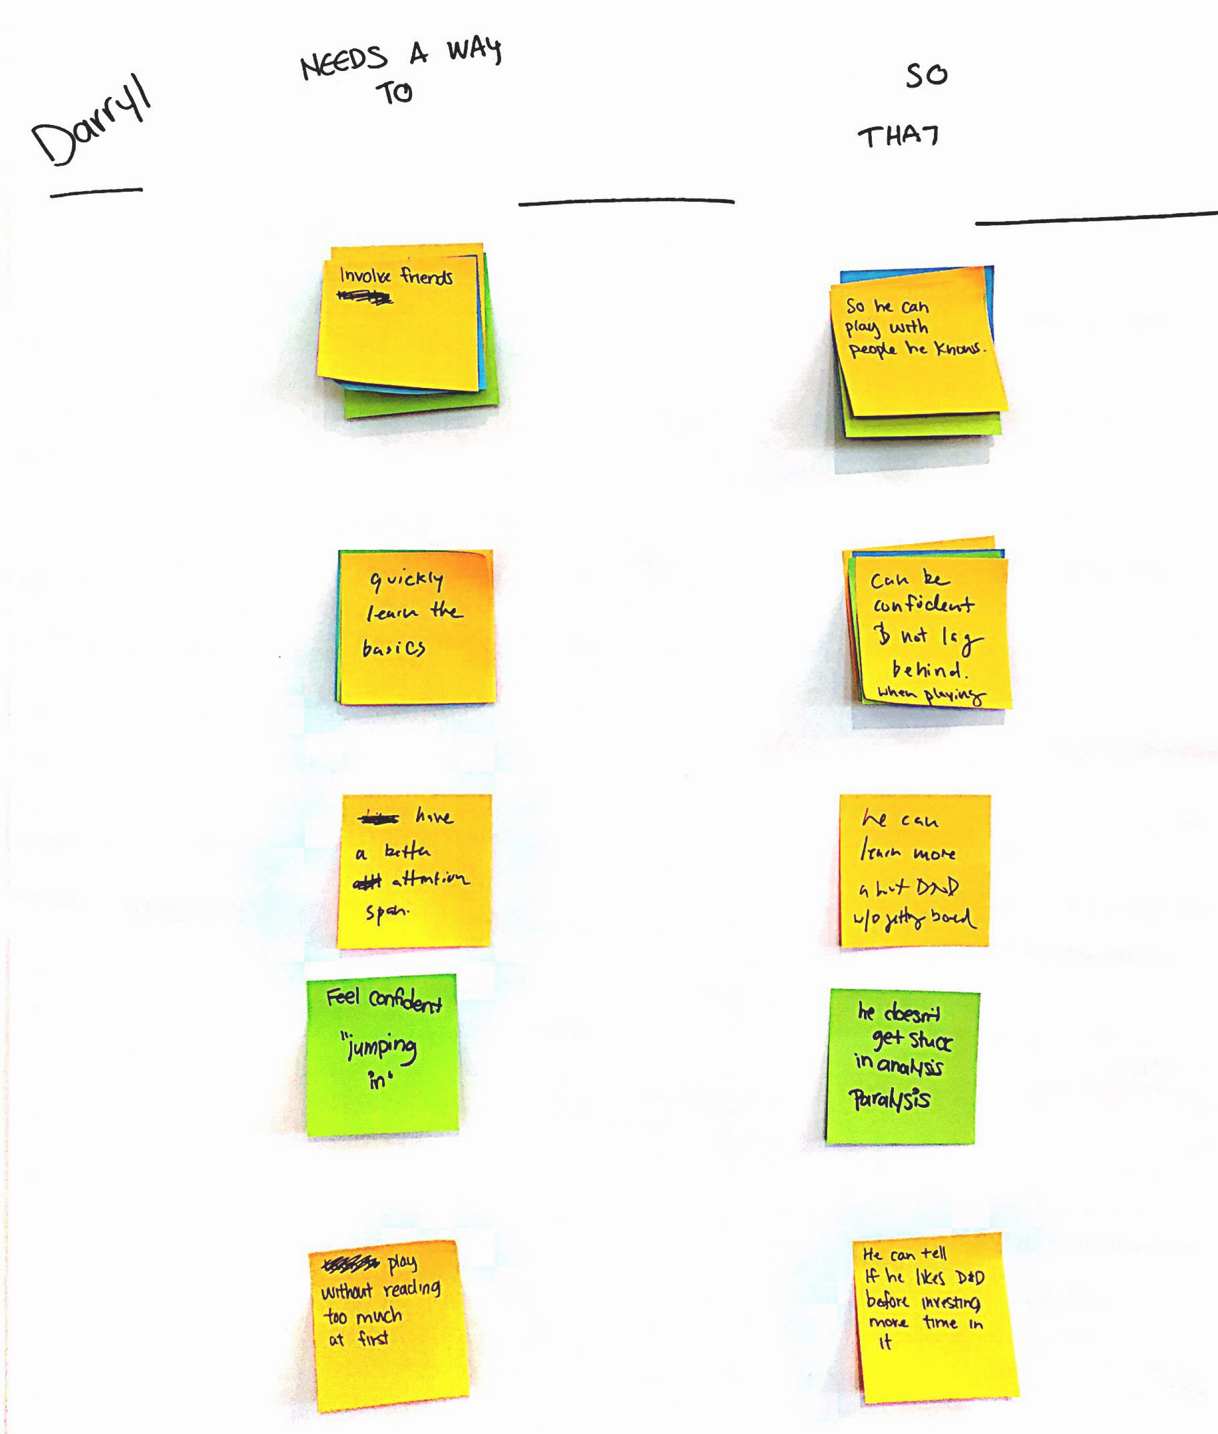 Darryl
NEEDS A WAY
TO
SO
THAT
Involve friends
So he can
play with
people he knows.
quickly
learn the
basics
Can be
confident
& not lag
behind.
when playing
have
a better
attention
span.
he can
learn more
abut DND
w/o getting bored
Feel confident
"jumping
in"
he doesn't
get stuck
in analysis
Paralysis
play
without reading
too much
at first
He can tell
If he likes D&D
before investing
more time in
it